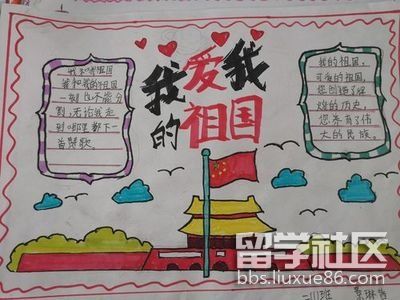 我爱我
的祖国
我和我的祖国
我和我的祖国
一刻也不能分
割,无论我走
到哪里都下一
首赞歌
我的祖国,
可爱的祖国,
您创造了辉
煌的历史,
您养育了伟
大的民族。
留学社区
bbs.liuxue86.com